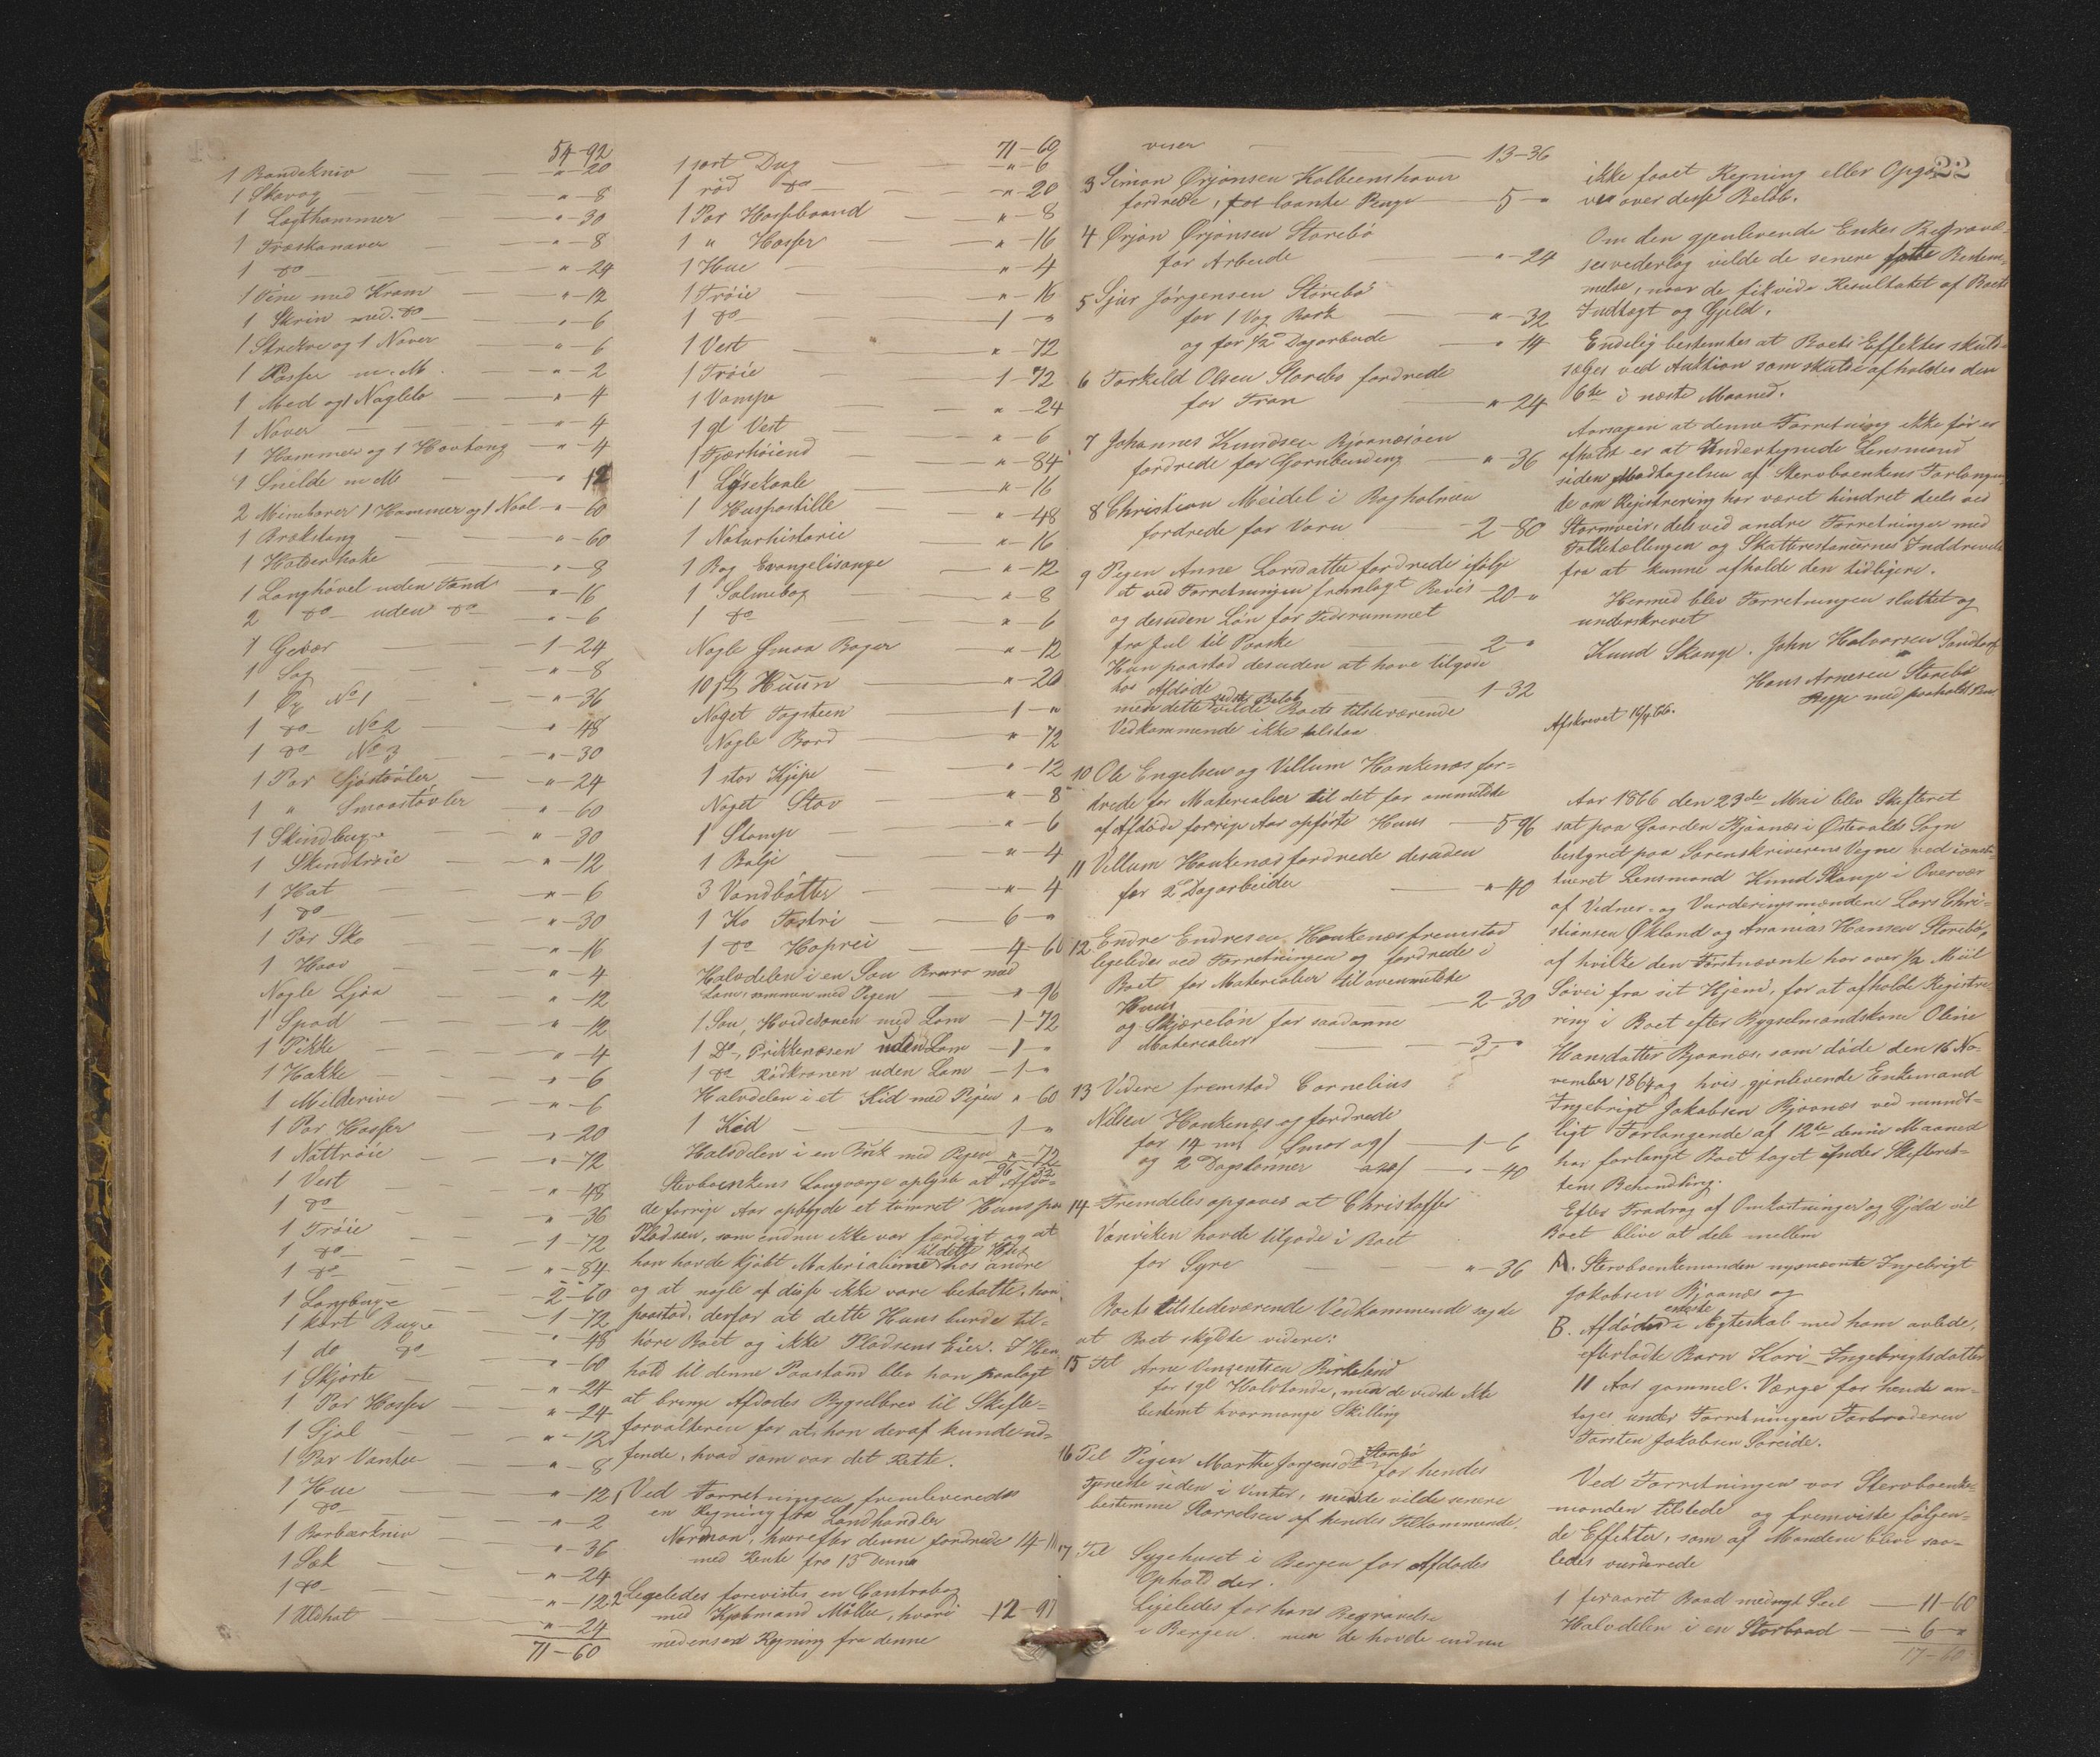 54-92
1 Baandekniv " - 20
1 Skavog " - 8
1 Lagthammer " - 30
1 Træskanaver " - 8
1 do " - 24
1 Tine med Kram " - 12
1 Skrin med do " - 6
1 Strekve og 1 Naver " - 6
1 Passer m. M. " - 2
1 Med og 1 Naglelo " - 4
1 Naver " - 4
1 Hammer og 1 Hovtang " - 4
1 Snelde m M " 12
2 Minebarer 1 Hammer og 1 Naal " - 60
1 Brækstang " - 60
1 Haderhake " - 8
1 Langhøvel uden Tand " - 16
2 do uden do " - 6
1 Gevær 1 - 24
1 Sag " - 8
1 Øx No 1 " - 36
1 do No 2 " 48
1 do No 3 " - 30
1 Par Sjøstøvler " - 24
1 " Smaastøvler " - 60
1 Skindbuxe " - 30
1 Skindtrøie " - 12
1 Hat " - 6
1 do " - 30
1 Par Sko " - 16
1 Haav " - 4
Nogle Ljaa " - 12
1 Spad " - 12
1 Pikke " - 4
1 Hakke " - 6
1 Milderive " - 6
1 Par Hosser " - 20
1 Nattrøie " - 72
1 Vest " - 48
1 do " - 36
1 Trøie 1 - 72
1 do " - 84
1 do 2 - 60
1 Langbuxe 1 - 72
1 kort Buxe " - 48
1 do do " - 60
1 Skjorte " - 24
1 Par Hosser " - 24
1 Sjal " - 12
1 Par Vanter " - 8
1 Hue " - 12
1 do " - 2
1 Barbærkniv " - 36
1 Sæk " - 24
1 do " - 12
1 Uldhat " - 24
71 - 60
71 - 60
1 sort Dug " - 6
1 rød do " - 20
1 Par Hossebaand " - 8
1 " Hosser " - 16
1 Hue " - 4
1 Trøie " - 16
1 do 1 - "
1 Vest " - 72
1 Trøie 1 - 72
1 Vampe " - 24
1 gl Vest " - 6
1 Fjærhøiend " - 84
1 Lysekaale " - 16
1 Huspostille " - 48
1 Naturhistorie " - 16
1 Bog Evangelisange " - 12
1 Salmebog " - 8
1 do " - 6
Nogle Smaa Bøger " - 12
10 st Huun " - 20
Noget Tagsteen 1 - "
Nogle Bord " - 72
1 stor Kjipe " - 12
Noget Stav " - 8
1 Stamp " - 6
1 Balje " - 4
3 Vandbøtter " - 4
1 Ko Fostri 6 - "
1 do Hoprei 4 - 60
Halvdelen i en Sau Brura med
Lam, sammen med Pigen " - 96
1 Sau, Hvidesauen med Lam 1 - 72
1 Do, Prikkenæsen uden Lam 1 - "
1 do Rødkronen uden Lam 1 - "
Halvdelen i et Kid med Pigen " - 60
1 Kid 1 - "
Halvdelen i en Buk med Pigen " - 72
96 - 52
Stervboenkens Laugværge oplyste at Afdø-
de forrige Aar opbygde et tømret Huus paa
Pladsen, som endnu ikke var færdigt og at
han havde kjøbt Materialierne til dette Hus hos andre
og at nogle af disse ikke vare betalte, han
paastod, derfor at dette Huus burde til-
høre Boet og ikke Pladsens Eier. I Hen
hold til denne Paastand blev han paalagt
at bringe Afdødes Bygselbrev til Skifte-
forvalteren for at han deraf kunde ud-
finde, hvad som var det Rette.
1 Ved Forretningen fremleveredes
en Regning fra Landhandler
Nordman, hvorefter denne fordrede 14 - 11
med Rente fra 13 Denne
2 Ligeledes forevistes en Contrabog
med Kjøbmand Møller, hvori 12 - 91
medensen Regning fra denne
viser 13 - 36
3 Simon Ørjansen Kolbeenshavn
fordrede, for laante Penge 5 - "
4 Ørjan Ørjansen Storebø
for Arbeide " - 24
5 Sjur Jørgensen Storebø
for 1 Vog Bark " - 32
og for 1/2 Dagarbeide " - 14
6 Torkild Olsen Storebø fordrede
for Tran " - 24
7 Johannes Knudsen Bjaanæsøen
fordrede for Garnbinding " - 36
8 Christian Meidel i Bagholmen
fordrede for Varu 2 - 80
9 Pigen Anne Larsdatter fordrede ifølge
et ved Forretningen fremlagt Bevis 20 - "
og desuden Løn for Tidsrummet
fra Jul til Paaske 2 - "
Hun paastod desuden at have tilgode
hos Afdøde 1 - 32
men dette sidste Beløb vilde Boets tilstedeværende
Vedkommende ikke tilstaa
10 Ole Engelsen og Villum Haukenæs for-
drede for Materialier til det før ommeldte
af Afdøde forrige Aar opførte Huus 5 - 96
11 Villum Haukenæs fordrede desuden
for 2 Dagarbeider " - 40
12 Endre Endresen Haukenæs fremstod
ligeledes ved Forretningen og fordrede i
Boet for Materialier til ovenmeldte
Huus 2 - 30
og Skjæreløn for saadanne
Materialier 3 - "
13 Videre fremstod Cornelius
Nilsen Haukenæs og fordrede
for 14 mk Smør og 1 - 6
og 2 Dagstanner " - 40
14 Fremdeles opgaves at Christoffer
Vanviken havde tilgode i Boet
for Syre " - 36
Boets tilstedeværende Vedkommende sagde
at Boet skyldte videre:
15 Til Arne Vinsentsen Birkeland
for 1 gl Halvtønde, men de vidste ikke
bestemt hvormange Skilling
16 Til Pigen Marthe Jørgensdtr Storebø for hendes
Tjeneste siden i Vinter, mendte vilde senere
bestemme Størrelsen af hendes Tilkommende.
17 Til Sygehuset i Bergen for Afdødes
Ophold der.
Ligeledes for hans Begravelse
i Bergen men de havde endnu
22
ikke faaet Regning eller Opga-
ver over disse Beløb.
Om den gjenlevende Enkes Begravel-
sesvederlag vilde de senere fatte Bestem-
melse, naar de fik vide Resultatet af Boets
Indtægt og Gjeld.
Endelig bestemtes at Boets Effekter skulde
sælges ved Auktion som skulde afholdes den
6te i næste Maaned.
Aarsagen at denne Forretning ikke før er
afholdt er at Undertegnede Lensmand
siden Modtagelsen af Stervboenkens Forlangen-
de om Registrering har været hindret deels ved
Stormveir, dels ved andre Forretninger med
Folketællingen og Skatterestancernes Inddrivelse
fra at kunne afholde den tidligere.
Hermed blev Forretningen sluttet og
underskrevet
Knud Skange. John Halvorsen Sandtorf
Hans Arnesen Storebø
Begge med paaholdt Pen
Afskrevet 16/4 66.
Aar 1866 den 23de Mai blev Skifteret
sat paa Gaarden Bjaanæs i Østevolds Sogn
bestyret paa Sorenskriverens Vegne ved consti-
tueret Lensmand Knud Skange i Overvær
af Vidner- og Vurderingsmændene Lars Chri-
stiansen Økland og Ananias Hansen Storebø,
af hvilke den Førstnævnte har over 1/2 Miil
Søvei fra sit Hjem, for at afholde Registre-
ring i Boet efter Bygselmandskone Oline
Hansdatter Bjaanæs, som døde den 16 No-
vember 1864 og hvis gjenlevende Enkemand
Ingebrigt Jakobsen Bjaanæs ved mundt-
ligt Forlangende af 12te denne Maaned
har forlangt Boet taget under Skifteret-
tens Behandling.
Efter Fradrag af Omkostninger og Gjeld vil
Boet blive at dele mellem
A. Stervboenkemanden nysnævnte Ingebrigt
Jakobsen Bjaanæs og
B. Afdødes eneste i Ægteskab med ham avlede,
efterladte Barn Kari Ingebrigtsdatter
11 Aar gammel. Værge for hende an-
toges under Forretningen Farbroderen
Torsten Jakobsen Soreide.
Ved Forretningen var Stervboenke-
manden tilstede og fremviste følgen-
de Effekter, som af Mændene bleve saa-
ledes vurderede
1 firaaret Baad med Seil 11 - 60
Halvdelen i en Storbaad 6 - "
17 - 60